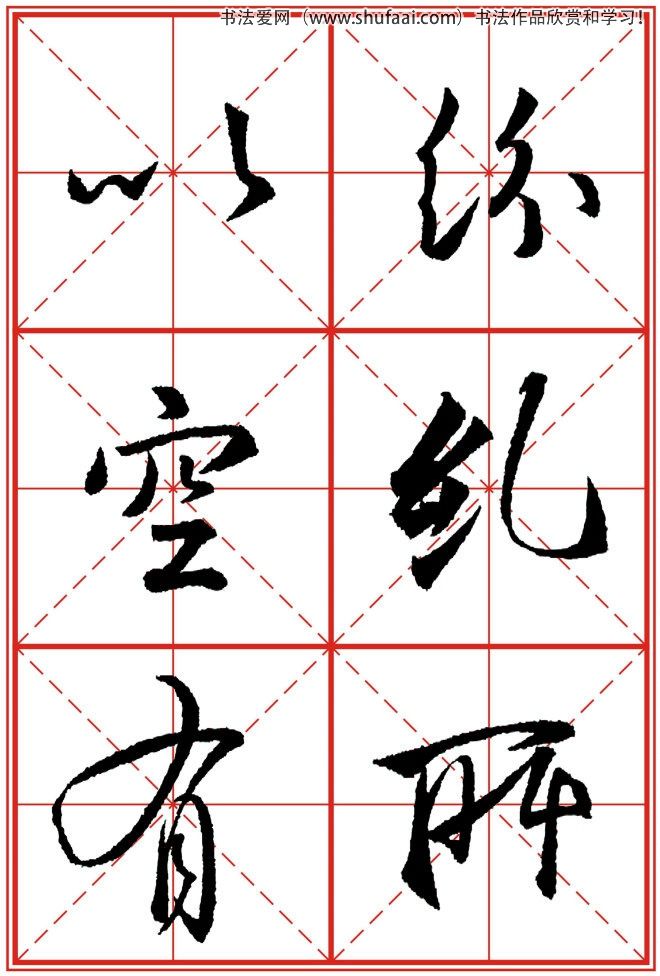 书法爱网（www.shufaai.com）书法作品欣赏和学习!
紛糺所
以空有